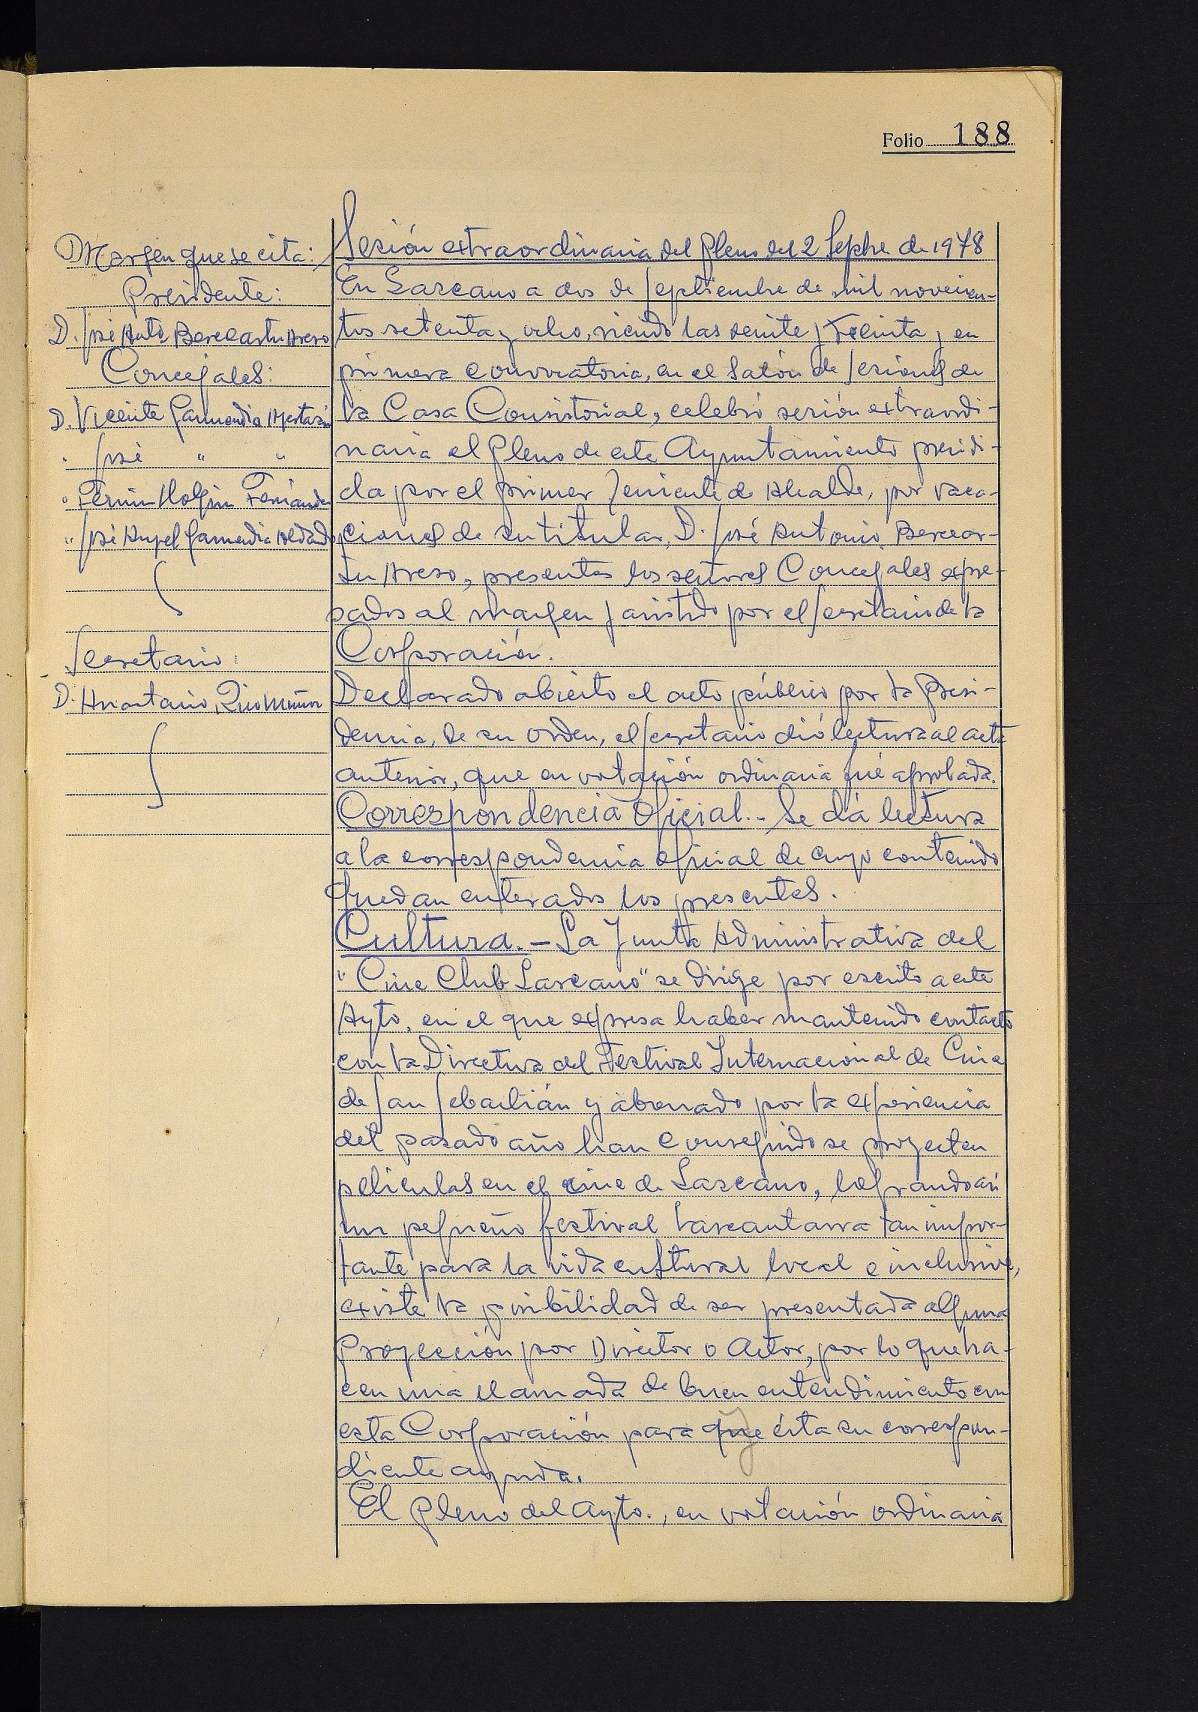 Folio 188
Margen que se cita:
Presidente:
D. José Antº Bereciartu Areso
Concejales:
D. Vicente Garmendia
" José " "
" Fermin Holguin Fernandez
" José Angel Garmendia
Secretario:
D. Anastasio
Sesión extraordinaria del Pleno del 2 Sepbre de 1978
En Lazcano a dos de septiembre de mil novecien-
tos setenta y ocho, siendo las veinte y treinta y en
primera convocatoria, en el Salón de sesiones de
la Casa Consistorial, celebró sesión extraordi-
naria el Pleno de este Ayuntamiento presidi-
da por el primer Teniente de Alcalde, por vaca-
ciones de su titular, D. José Antonio Berecar-
tu Areso, presentes los señores Concejales expre-
sados al margen y asistido por el Secretario de la
Corporación.
Declarado abierto el acto público por la Presi-
dencia, de su orden, el Secretario dió lectura al acta
anterior, que en votación ordinaria fué aprobada.
Correspondencia Oficial.- Se dá lectura
a la correspondencia oficial de cuyo contenido
quedan enterados los presentes.
Cultura.- La Junta Administrativa del
"Cine Club Lazcano" se dirige por escrito a este
Ayto. en el que expresa haber mantenido contacto
con la Directiva del Festival Internacional de Cine
de San Sebastián y abonado por la experiencia
del pasado año han conseguido se proyecten
peliculas en el cine de Lazcano, logrando así
un pequeño festival lazcautarra tan impor-
tante para la vida cultural local e inclusive,
existe la posibilidad de ser presentada alguna
Proyección por Director o Actor, por lo que ha-
cen una llamada de buen entendimiento con
esta Corporación para que ésta su correspon-
diente ayuda.
El Pleno del Ayto., en votación ordinaria